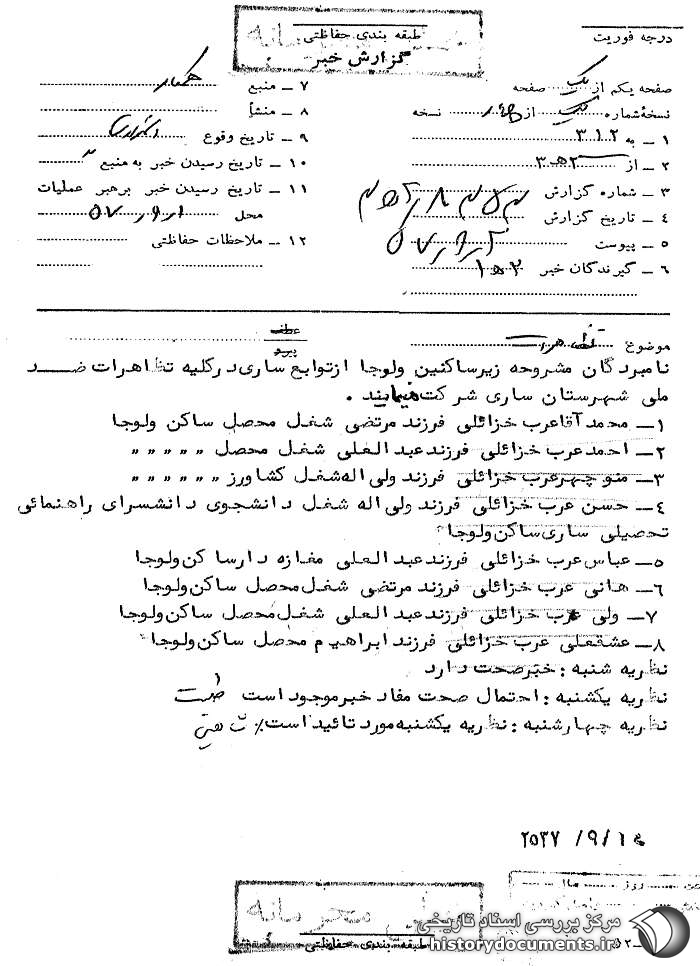 طبقه بندی حفاظتی
گزارش خبر
درجه فوریت
صفحه یکم از یک صفحه
نسخهٔ شماره یک از نسخه
۱ ــ به ۳۱۲
۲ ــ از ۳ه۲
۳ ــ شماره گزارش
٤ ــ تاریخ گزارش
۵ ــ پیوست
۶ ــ گیرندگان خبر
۷ ــ منبع همکار
۸ ــ منشأ
۹ ــ تاریخ وقوع
۱۰ ــ تاریخ رسیدن خبر به منبع
۱۱ ــ تاریخ رسیدن خبر برهبر عملیات
محل
۱۲ ــ ملاحظات حفاظتی
موضوع تظاهرات
عطف
پیرو
نامبردگان مشروحه زیرساکنین ولوجا ازتوابع ساری درکلیه تظاهرات ضد
ملی شهرستان ساری شرکت مینمایند .
۱ــ محمدآقاعرب خزائلی فرزند مرتضی شغل محصل ساکن ولوجا
۲ــ احمدعرب خزائلی فرزندعبدالعلی شغل محصل ,, ,, ,,
۳ــ منوچهرعرب خزائلی فرزند ولی اله شغل کشاورز ,, ,, ,,
٤ــ حسن عرب خزائلی فرزند ولی اله شغل دانشجوی دانشسرای راهنمائی
تحصیلی ساری ساکن ولوجا
۵ــ عباس عرب خزائلی فرزندعبدالعلی مغازه دارساکن ولوجا
۶ــ هانی عرب خزائلی فرزند مرتضی شغل محصل ساکن ولوجا
۷ــ ولی عرب خزائلی فرزندعبدالعلی شغل محصل ساکن ولوجا
۸ــ عشقعلی عرب خزائلی فرزند ابراهیم محصل ساکن ولوجا
نظریه شنبه : خبرصحت دارد
نظریه یکشنبه : احتمال صحت مفاد خبرموجود است
نظریه چهارشنبه : نظریه یکشنبه مورد تائید است٪
۲۵۳۷ /۹/۱۵
روز
طبقه بندی حفاظتی
مرکز بررسی اسناد تاریخی
historydocuments.ir